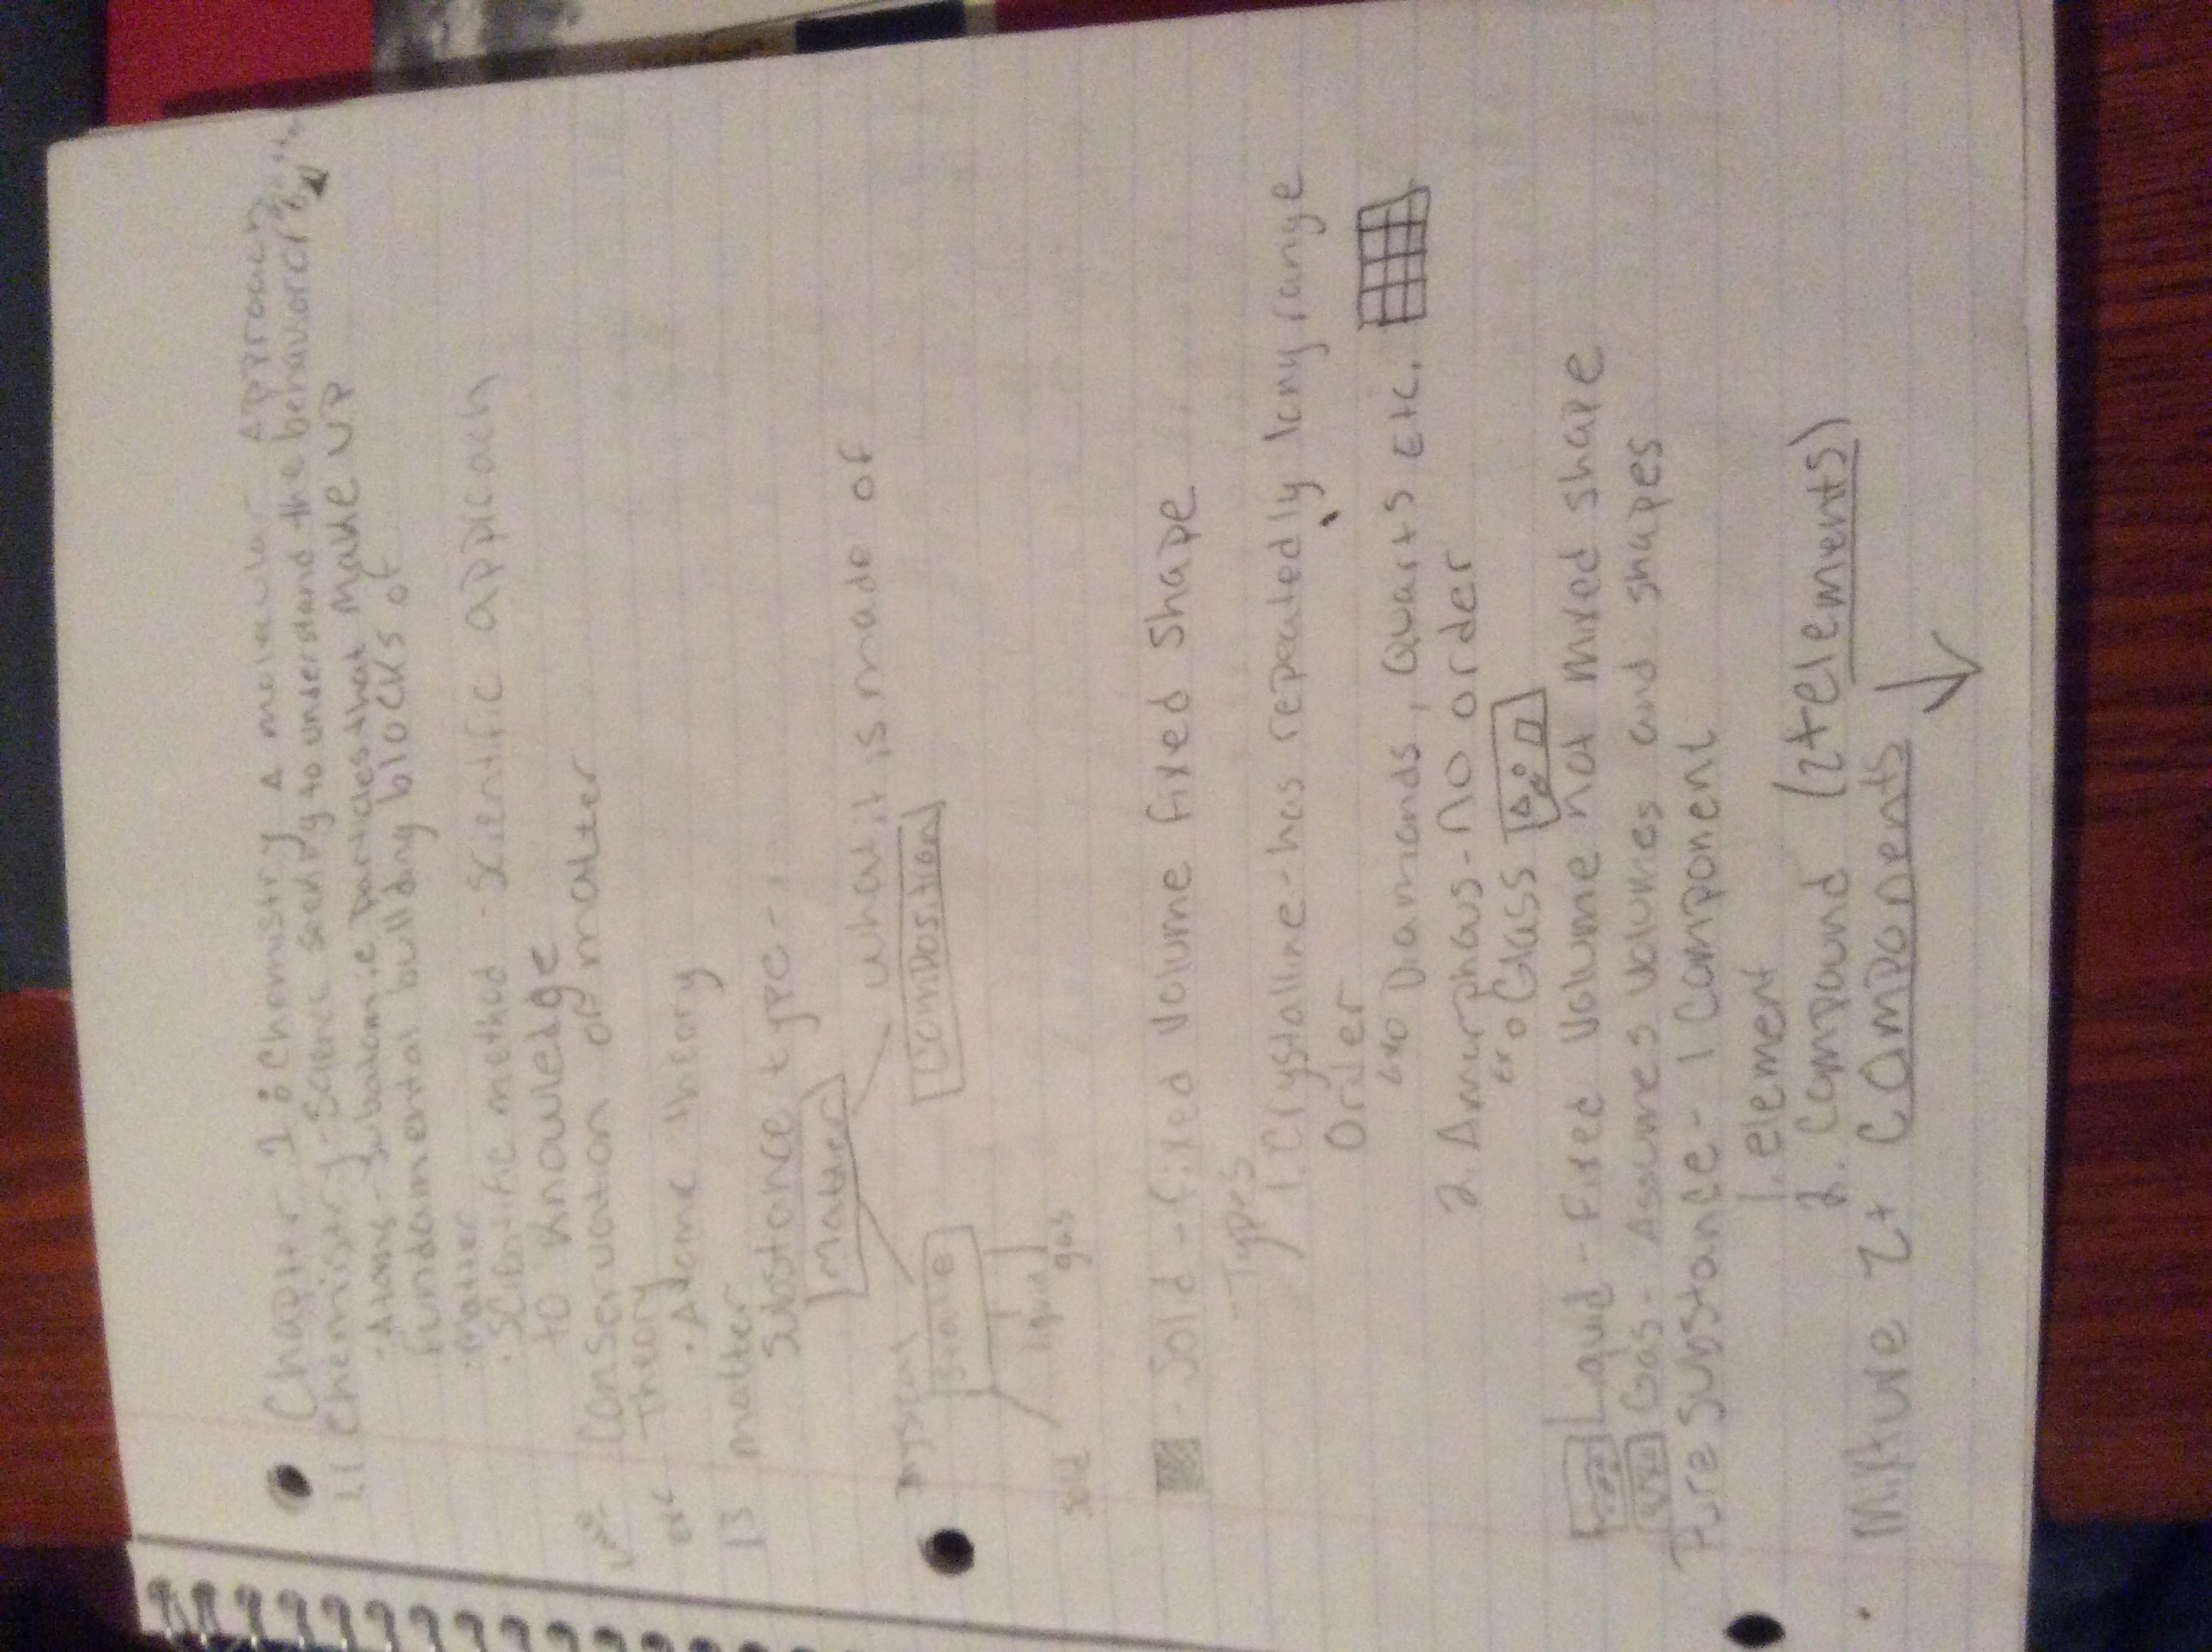 Chapter 1: Chemistry A molecular Approach
1.1 Chemistry - Science seeking to understand the behavior of
· Atoms - Subatomic particles that make up
fundamental building blocks of
· matter
· Scientific method - Scientific approach
to knowledge
Conservation of matter
Theory
· Atomic theory
13 matter
Substance type -
Matter
what it is made of
Physical
State
Composition
solid liquid gas
- Solid - fixed volume fixed shape
- Types
1. Crystalline - has repeatedly long range
Order
Ex o Diamonds, Quarts Etc.
2. Amorphous - no order
Ex o Glass
Liquid - Fixed volume not mixed shape
Gas - Assumes volumes and shapes
Pure Substance - 1 Component
1. element
2. Compound (2+ elements)
· Mixture 2+ Components